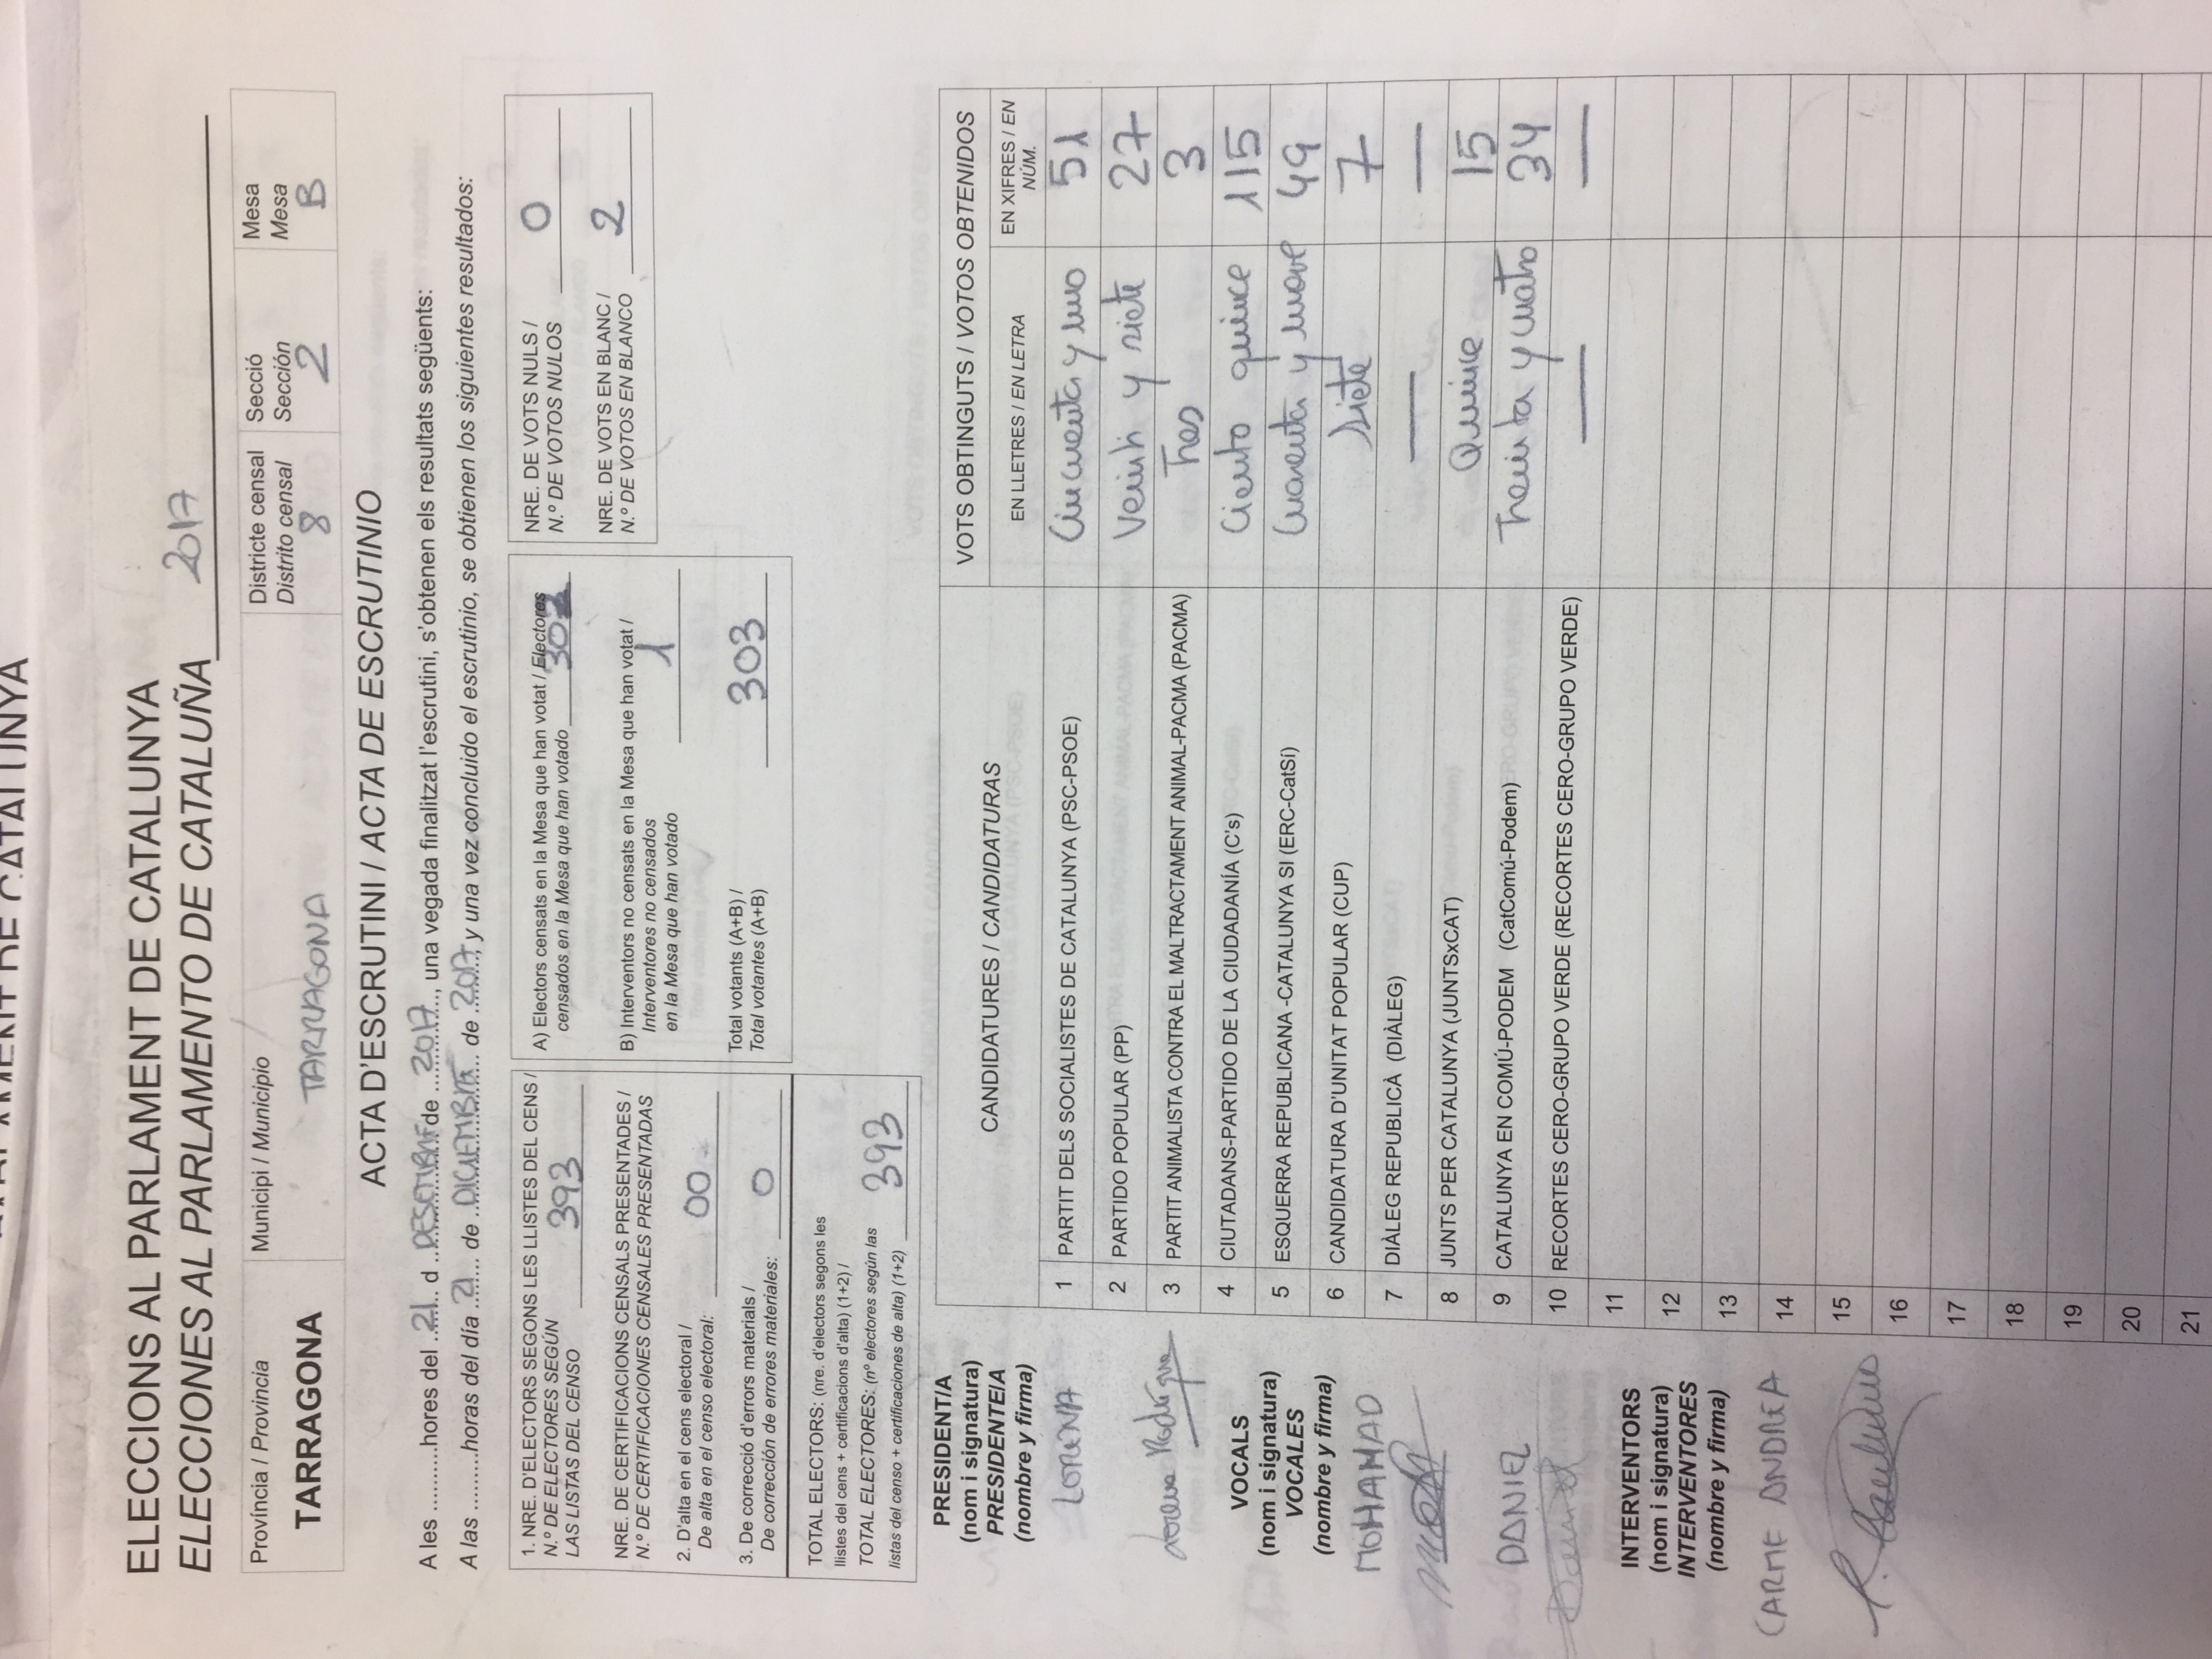 PARLAMENT DE CATALUNYA
ELECCIONS AL PARLAMENT DE CATALUNYA
ELECCIONES AL PARLAMENTO DE CATALUÑA 2017
Província / Provincia
TARRAGONA
Municipi / Municipio
TARRAGONA
Districte censal
Distrito censal
8
Secció
Sección
2
Mesa
Mesa
B
ACTA D'ESCRUTINI / ACTA DE ESCRUTINIO
A les ..........hores del 21 d DESEMBRE de 2017, una vegada finalitzat l'escrutini, s'obtenen els resultats següents:
A las .........horas del día 21 de DICIEMBRE de 2017, y una vez concluido el escrutinio, se obtienen los siguientes resultados:
1. NRE. D'ELECTORS SEGONS LES LLISTES DEL CENS /
N.º DE ELECTORES SEGÚN
LAS LISTAS DEL CENSO 393
NRE. DE CERTIFICACIONS CENSALS PRESENTADES /
N.º DE CERTIFICACIONES CENSALES PRESENTADAS
2. D'alta en el cens electoral /
De alta en el censo electoral: 00
3. De correcció d'errors materials /
De corrección de errores materiales: 0
TOTAL ELECTORS: (nre. d'electors segons les
llistes del cens + certificacions d'alta) (1+2) /
TOTAL ELECTORES: (nº electores según las
listas del censo + certificaciones de alta) (1+2) 393
A) Electors censats en la Mesa que han votat / Electores
censados en la Mesa que han votado 302
B) Interventors no censats en la Mesa que han votat /
Interventores no censados
en la Mesa que han votado 1
Total votants (A+B) /
Total votantes (A+B) 303
NRE. DE VOTS NULS /
N.º DE VOTOS NULOS 0
NRE. DE VOTS EN BLANC /
N.º DE VOTOS EN BLANCO 2
PRESIDENT/A
(nom i signatura)
PRESIDENTE/A
(nombre y firma)
LORENA
Lorena Rodrígue
VOCALS
(nom i signatura)
VOCALES
(nombre y firma)
MOHAMAD
DANIEL
Daniel
INTERVENTORS
(nom i signatura)
INTERVENTORES
(nombre y firma)
CARME ANDREA
CANDIDATURES / CANDIDATURAS
VOTS OBTINGUTS / VOTOS OBTENIDOS
EN LLETRES / EN LETRA
EN XIFRES / EN
NÚM.
1 PARTIT DELS SOCIALISTES DE CATALUNYA (PSC-PSOE) Cincuenta y uno 51
2 PARTIDO POPULAR (PP) Veinti y siete 27
3 PARTIT ANIMALISTA CONTRA EL MALTRACTAMENT ANIMAL-PACMA (PACMA) Tres 3
4 CIUTADANS-PARTIDO DE LA CIUDADANÍA (C's) Ciento quince 115
5 ESQUERRA REPUBLICANA -CATALUNYA SI (ERC-CatSí) Cuarenta y nueve 49
6 CANDIDATURA D'UNITAT POPULAR (CUP) Siete 7
7 DIÀLEG REPUBLICÀ (DIÀLEG) — —
8 JUNTS PER CATALUNYA (JUNTSxCAT) Quince 15
9 CATALUNYA EN COMÚ-PODEM (CatComú-Podem) Treinta y cuatro 34
10 RECORTES CERO-GRUPO VERDE (RECORTES CERO-GRUPO VERDE) — —
11
12
13
14
15
16
17
18
19
20
21